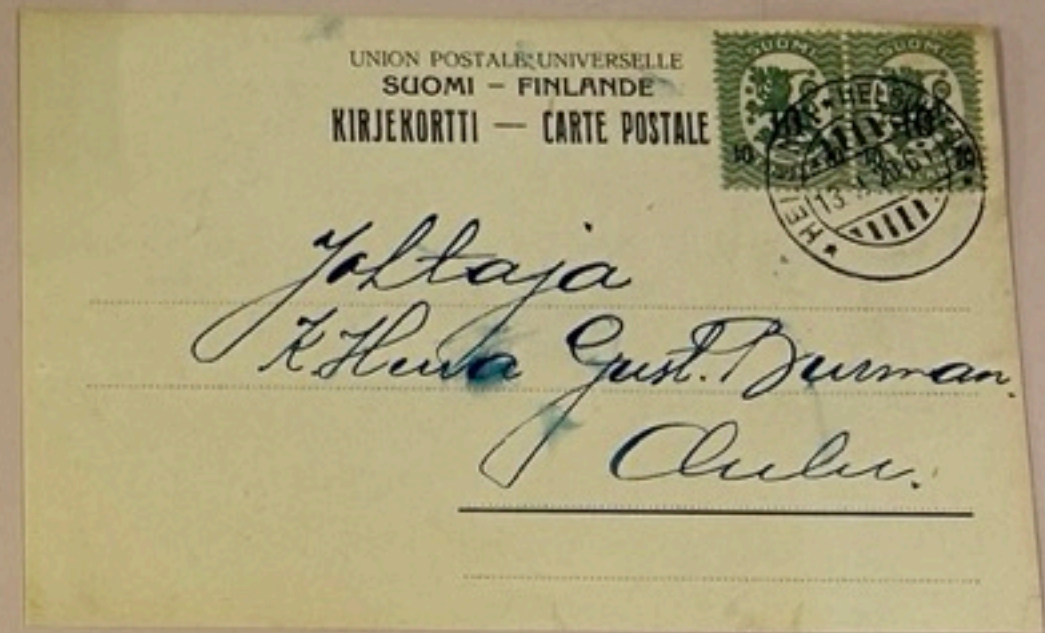 UNION POSTALE UNIVERSELLE
SUOMI – FINLANDE
KIRJEKORTTI — CARTE POSTALE
SUOMI SUOMI
10 10
HELSINKI
13
Johtaja
K. Herra Gust. Burman
Oulu.